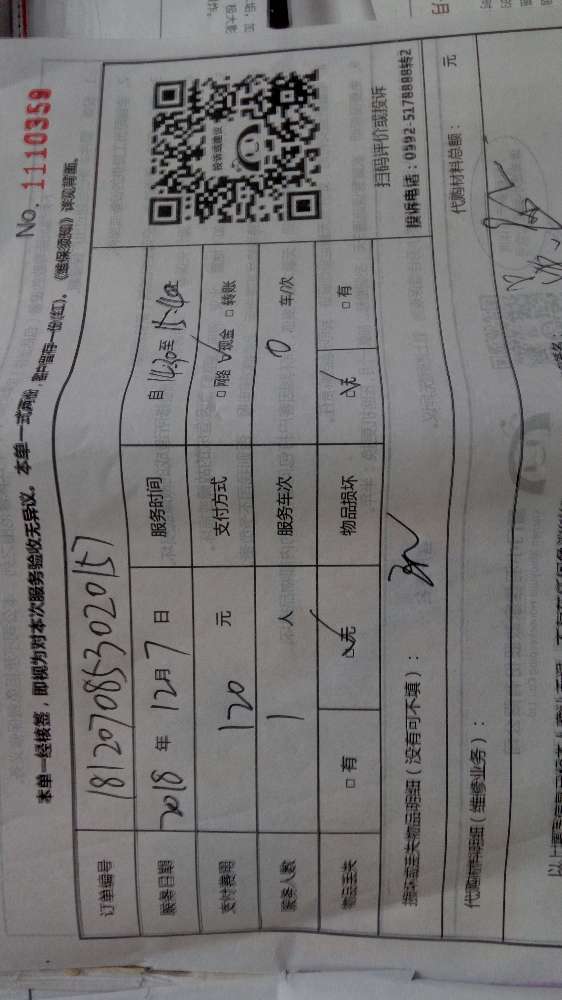 No. 1110359
本单一经核签，即视为对本次服务验收无异议。本单一式两份，客户留存一份(红)。《维保须知》详见背面。
订单编号 181207085302015７
服务日期 2018 年 12 月 7 日 服务时间 自 14:30 至 15:40止
支付费用 120 元 支付方式 □网络 ☑现金 □转账
服务人数 1 人 服务车次 0 车/次
物品丢失 □有 ☑无 物品损坏 ☑无 □有
投诉或建议
扫码评价或投诉
投诉电话：0592-5178888转2
损坏或丢失物品明细（没有可不填）：
代购材料明细（维修业务）： 代购材料总额： 元